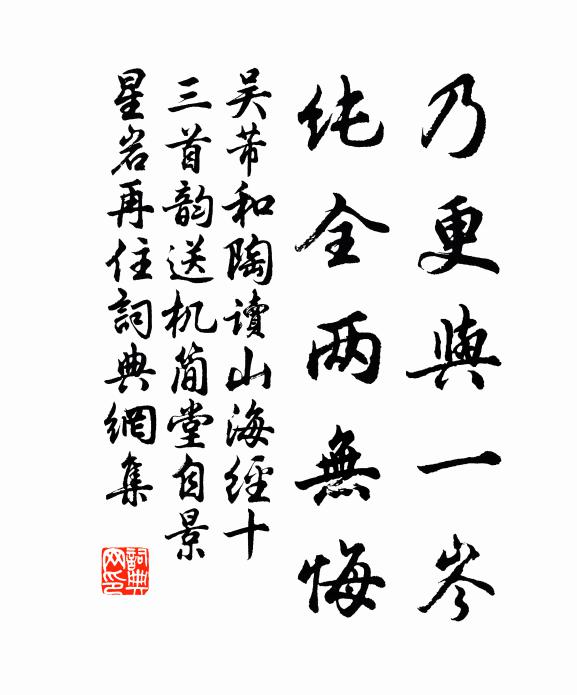 乃更與一岑
纯全两無悔
吴芾和陶讀山海經十
三首韵送机简堂自景
星岩再住詞典網集
詞典网印